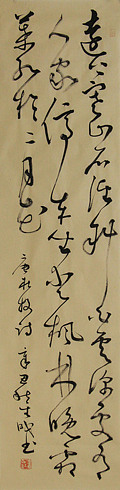 遠上寒山石徑斜白雲深處有
人家停車坐愛楓林晚霜
葉紅於二月花
唐杜牧詩辛丑書